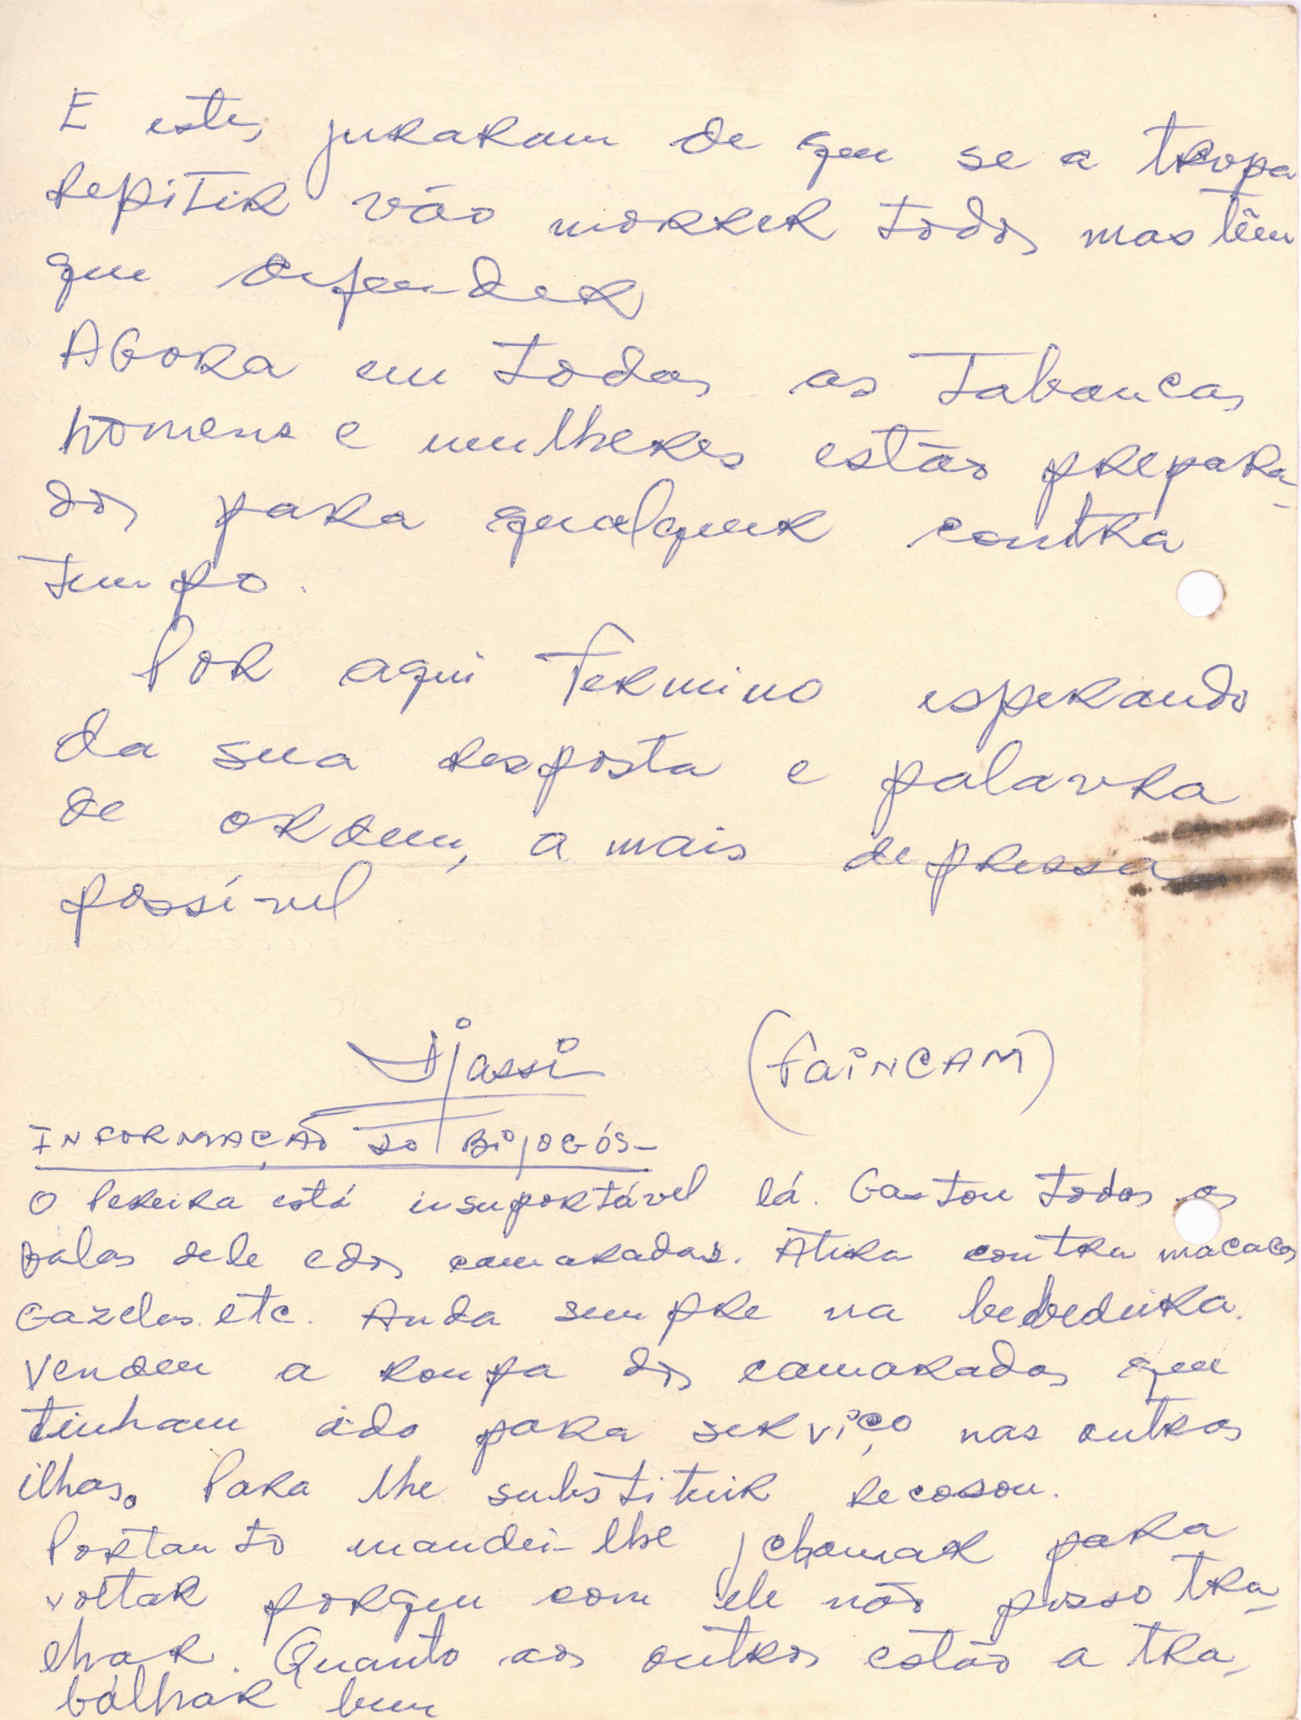 E estes, juraram de que se a tropa
repitir vão morrer todos mas têm
que defender
Agora em todas as tabancas
homens e mulheres estão prepara-
dos para qualquer contra
tempo.
Por aqui termino esperando
da sua resposta e palavra
de ordem, a mais depressa
possível
Djassi (FAINCAM)
INFORMAÇÃO DO BIJOGÓS-
O Pereira está insuportável lá. Gastou todos os
balas dele e dos camaradas. Atira contra macacos
gazelas. etc. Anda sempre na bebedeira.
Vendeu a roupa dos camaradas que
tinham ido para serviço nas outras
ilhas. Para lhe substituir recosou.
Portanto mandei-lhe chamar para
voltar porque com ele não posso tra-
lhar. Quanto aos outros estão a tra-
balhar bem